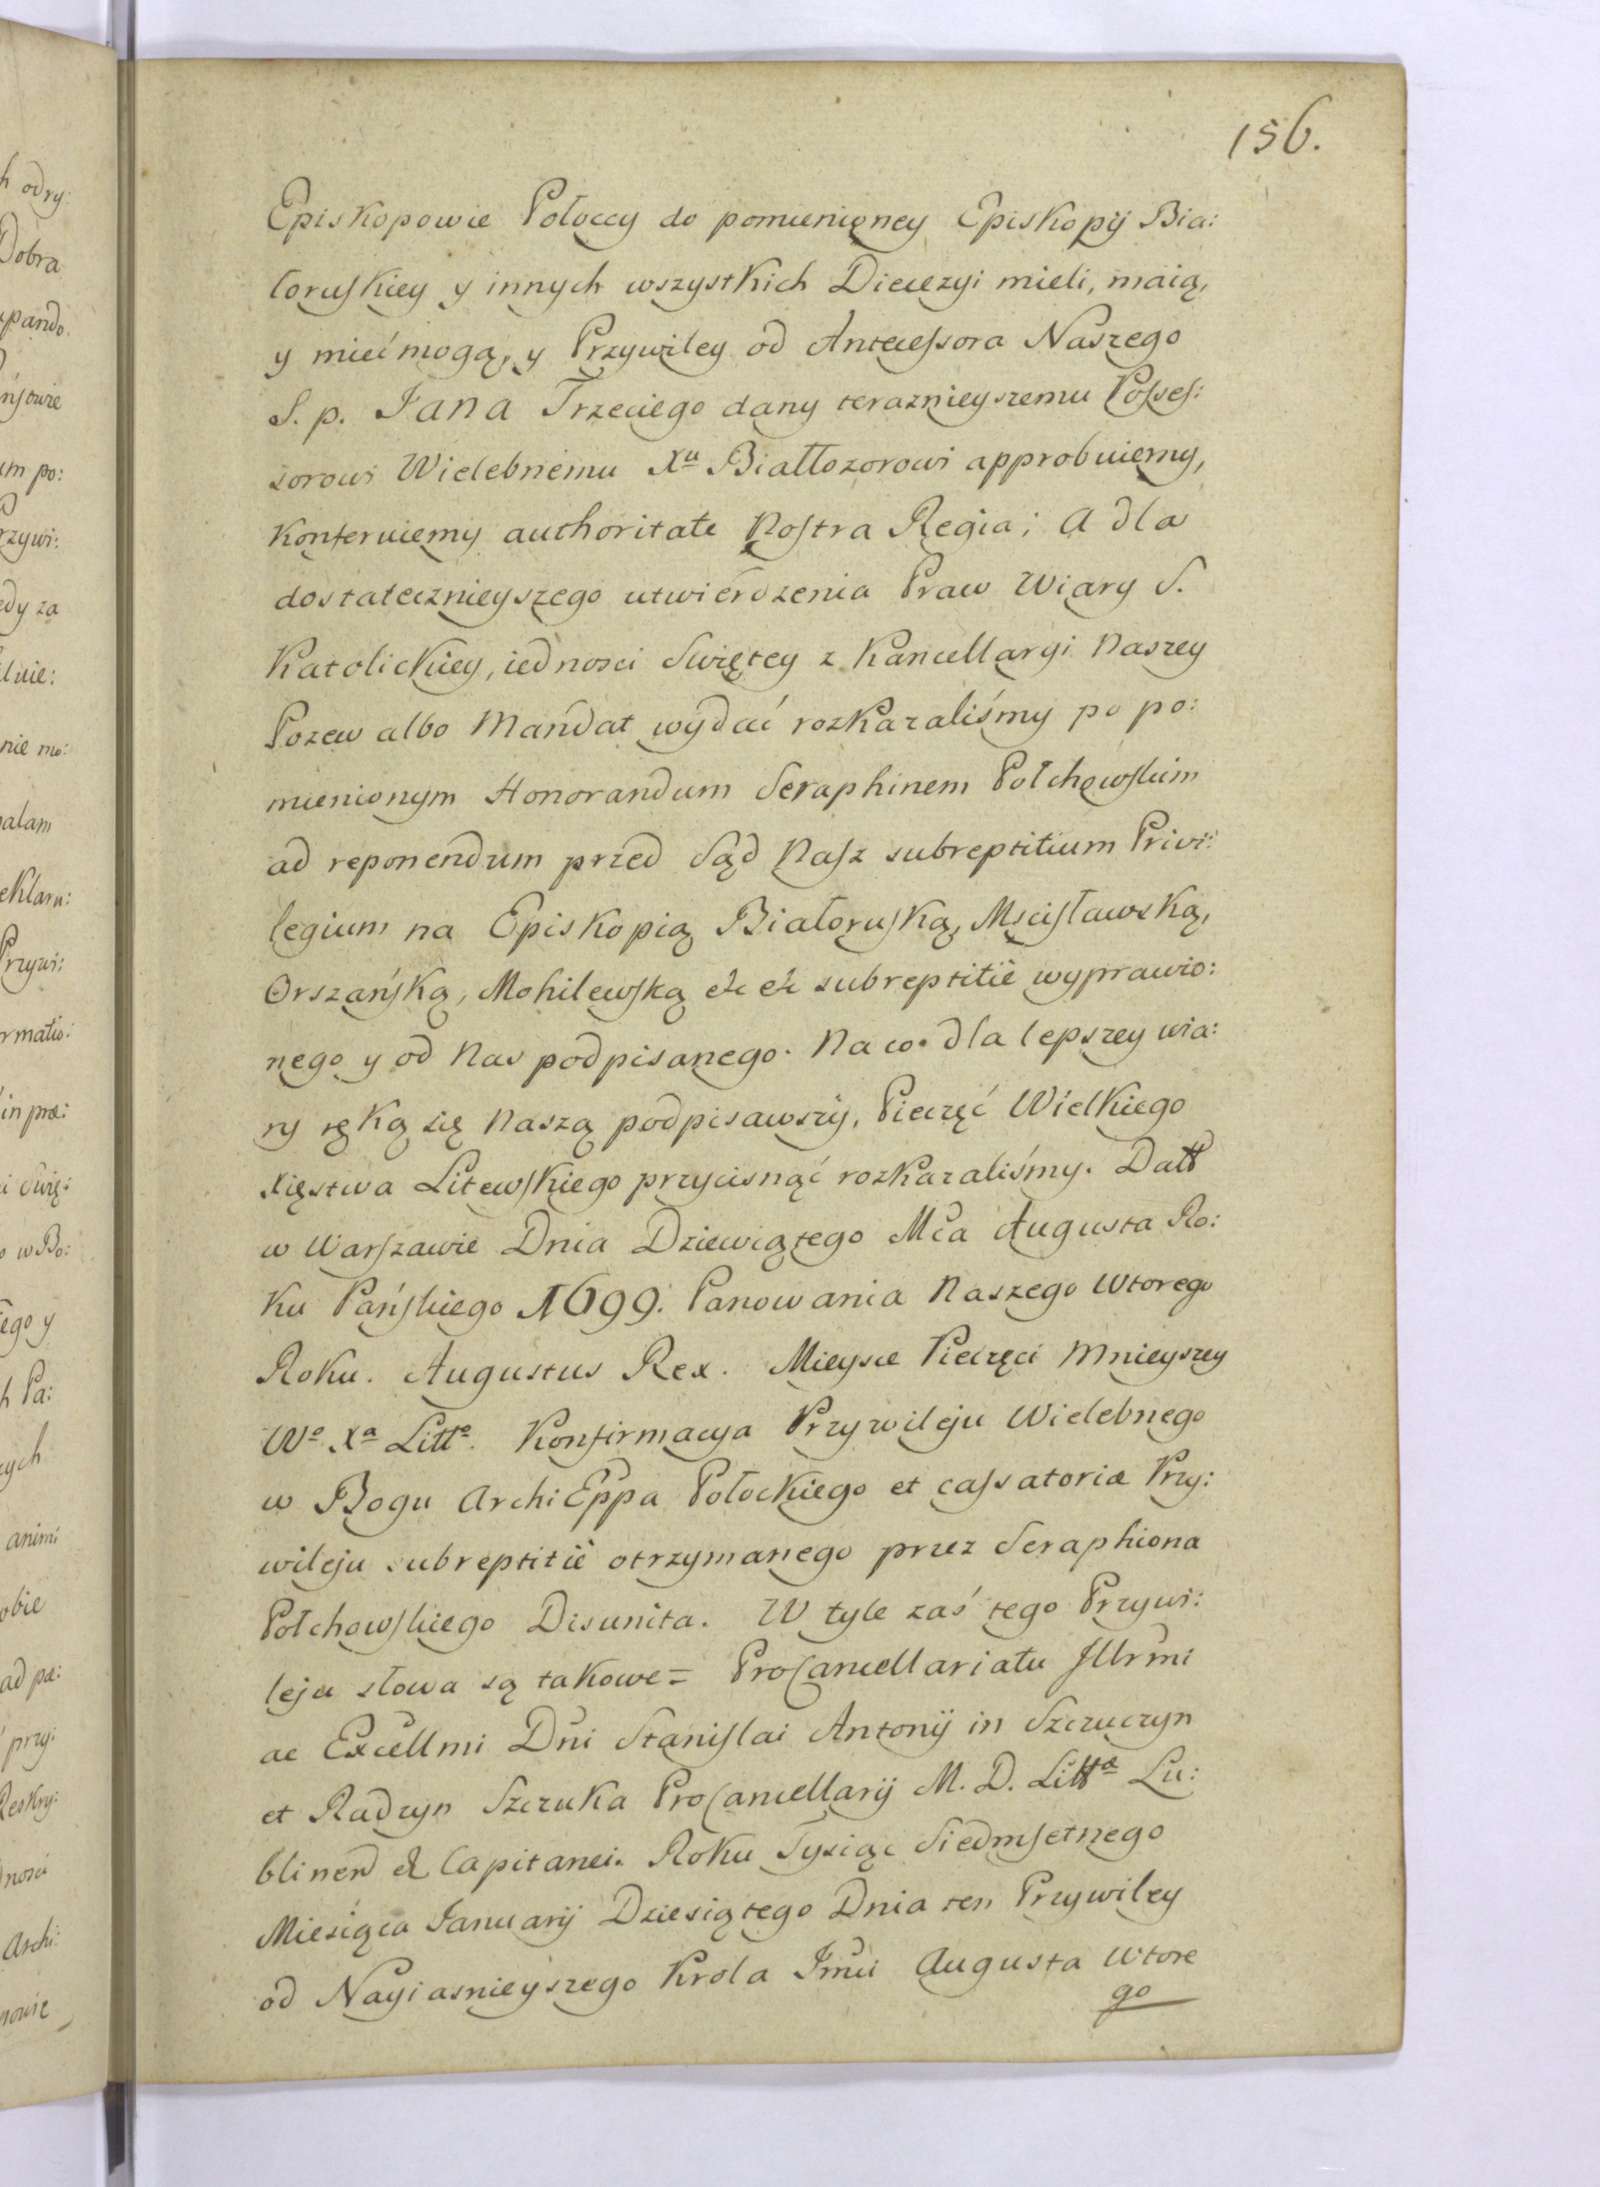 156.
Episkopowie Połoccy do pomienioney Episkopij Bia:
łoruskiey y innych wszystkich Diecezyi mieli, maią,
y mieć mogą, y Przywiley od Antecessora Naszego
S. p. Jana Trzeciego dany teraznieyszemu Posses:
sorowi Wielebnemu Xu Białłozorowi approbuiemy,
konferuiemy authoritate Nostra Regia; a dla
dostatecznieyszego utwierdzenia Praw Wiary S.
Katolickiey, iednosci Swiętey z Kancellaryi Naszey
Pozew albo Mandat wydać rozkazaliśmy po po:
mienionym Honorandum Seraphinem Połchowskim
ad reponendum przed Sąd Nasz subreptitium Privi:
legium na Episkopią Białoruską, Mscisławską,
Orszańską, Mohilewską etc etc subreptitiè wyprawio:
nego y od Nas podpisanego. Na co dla lepszey wia:
ry ręką się Naszą podpisawszy, Pieczęć Wielkiego
Xięstwa Litewskiego przycisnąć rozkazaliśmy. Datt
w Warszawie Dnia Dziewiątego Mca Augusta Ro:
ku Pańskiego 1699. Panowania Naszego Wtorego
Roku. Augustus Rex. Mieysce Pieczęci Mnieyszey
Wo Xa Litto. Konfirmacya Przywileju Wielebnego
w Bogu ArchiEppa Połockiego et cassatoriæ Przy:
wileju subreptitiè otrzymanego przez Seraphiona
Połchowskiego Disunita. W tyle zaś tego Przywi:
leju słowa są takowe = ProCancellariatu Jllrmi
ac Excellmi Dni Stanislai Antonij in Szczuczyn
et Radzyn Szczuka ProCancellarij M. D. Litta Lu:
blinen & Capitanei. Roku Tysiąc Siedmsetnego
Miesiąca Januarij Dziesiątego Dnia ten Przywiley
od Nayiasnieyszego Krola Jmci Augusta Wtore
go